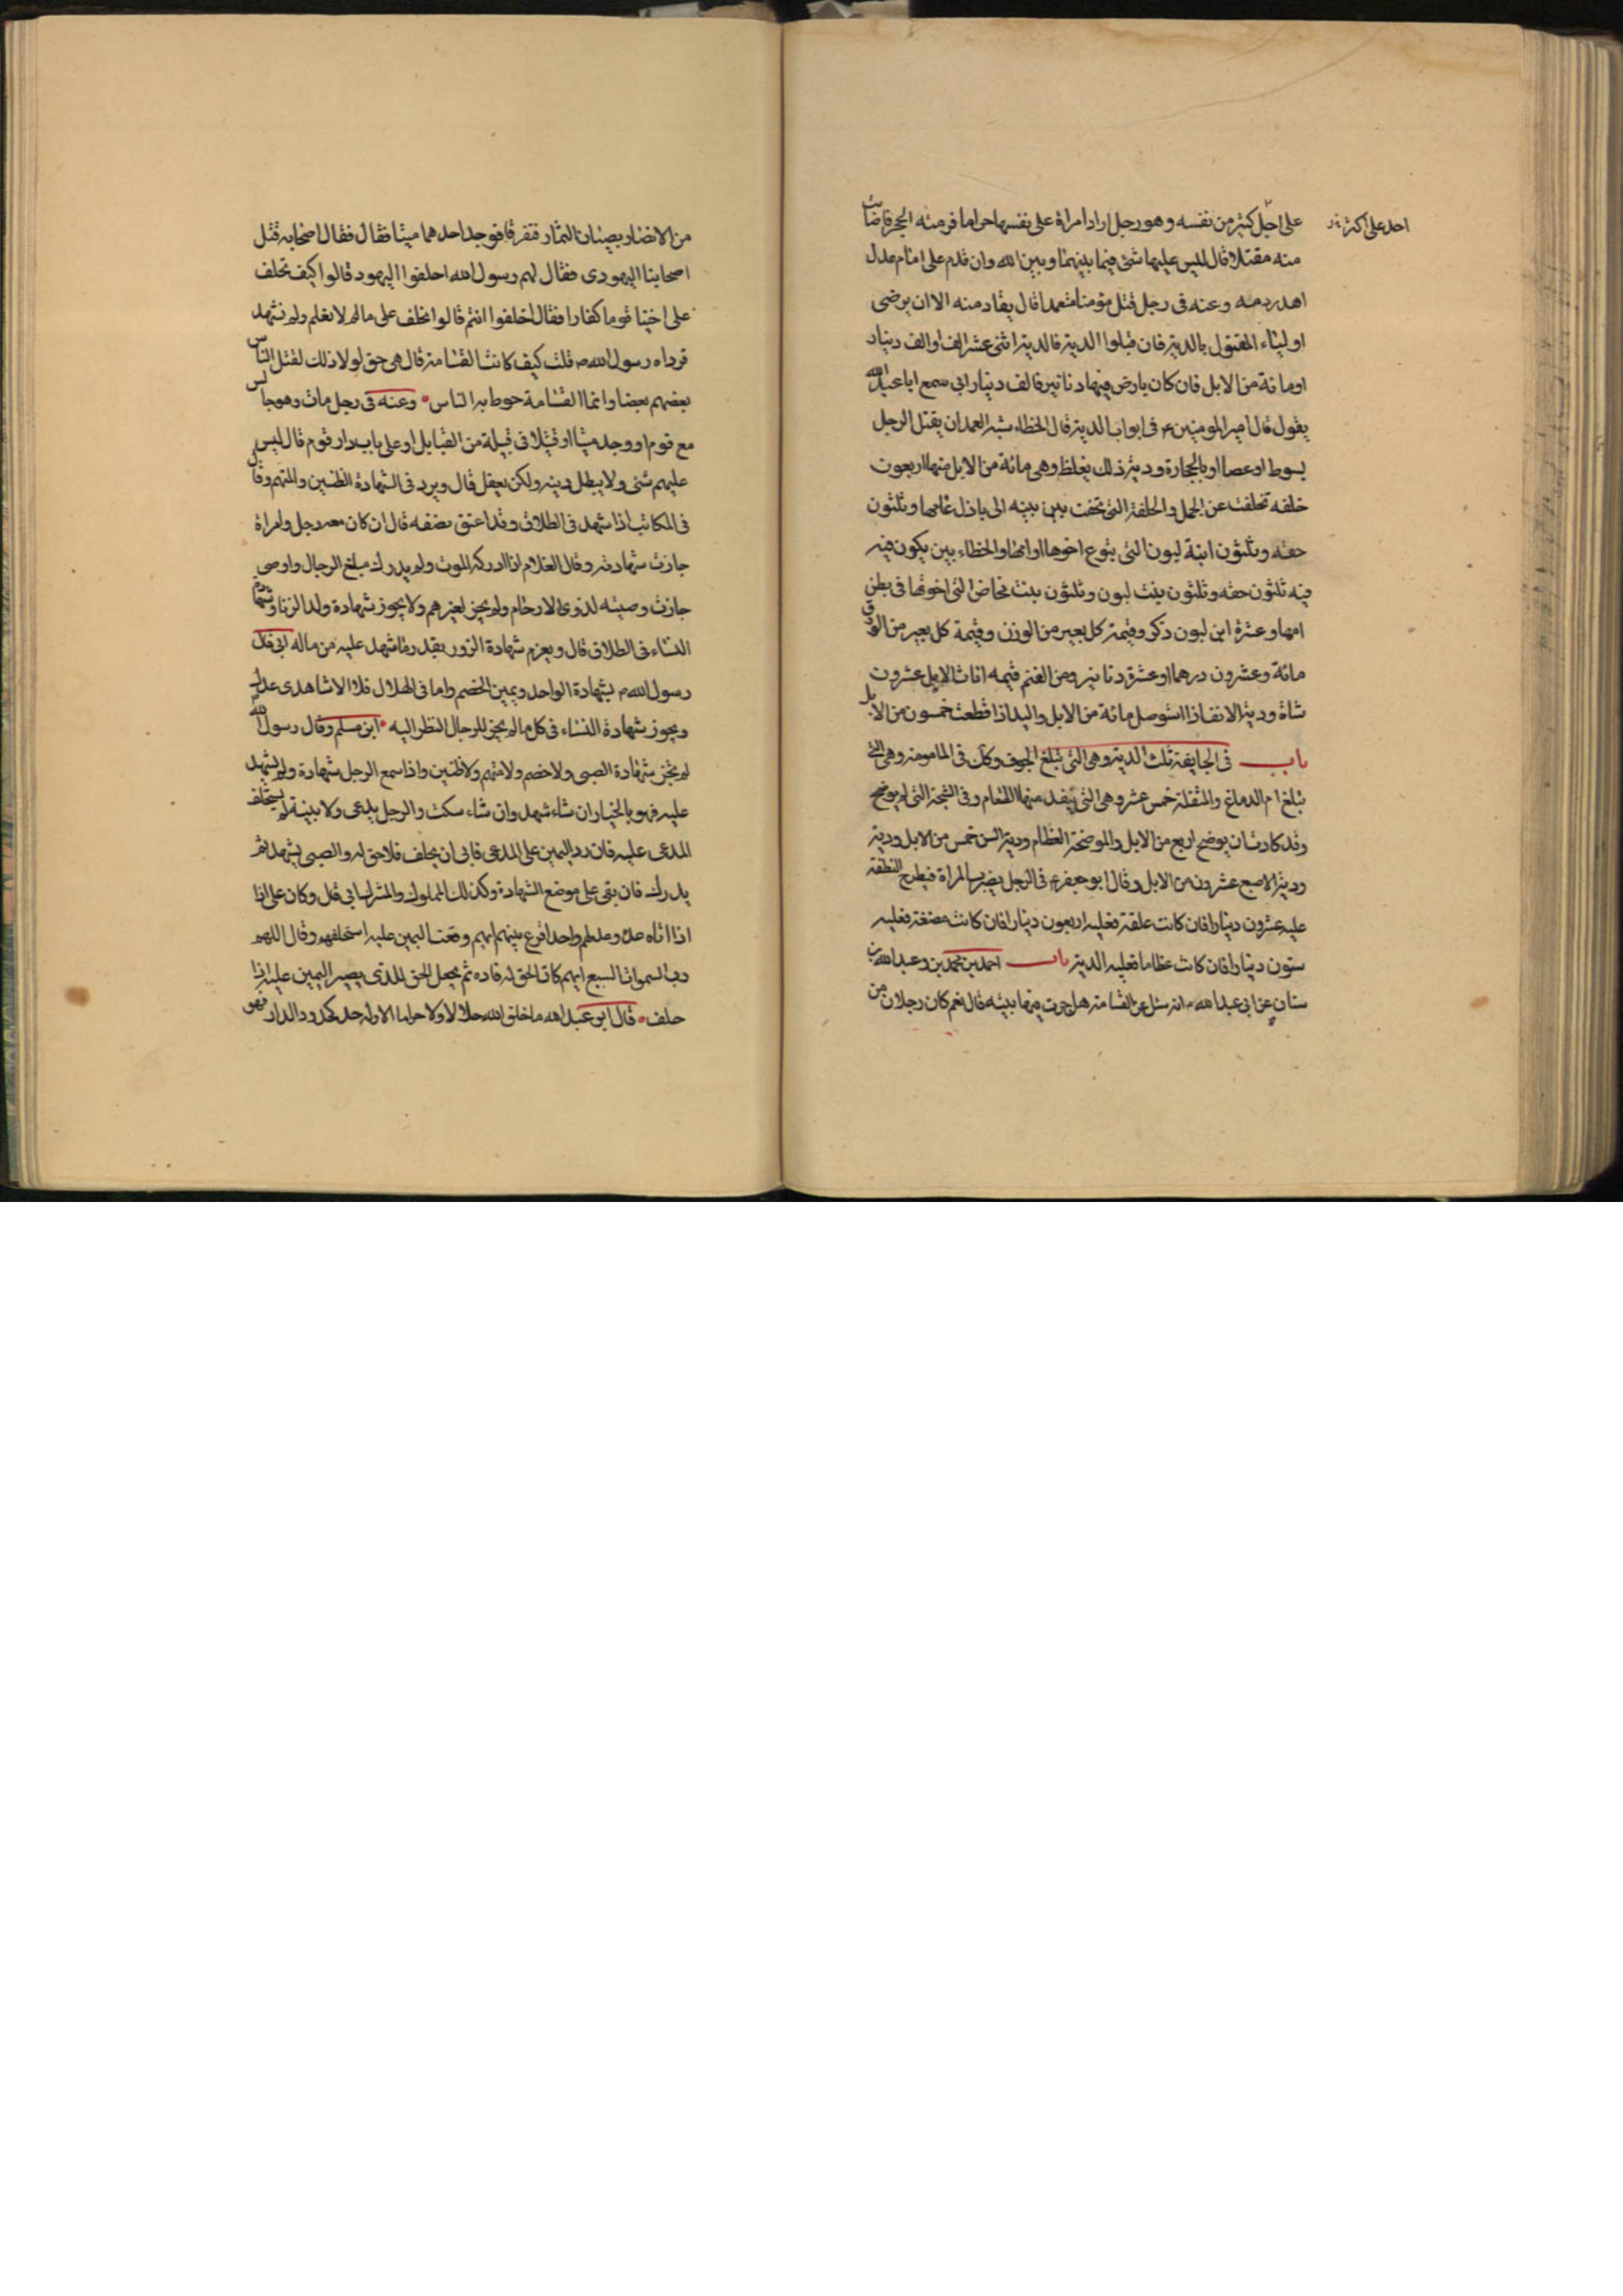 احد على اكثر من
على اجل كثير من نفسه وهو رجل اراد امراة على نفسها حراما فرمته الحجر فاصابت
منه مقتلا قال ليس عليها شئ فيما بينهما وبين الله وان قدم على امام عدل
اهدر دمه وعنه فى رجل قتل مؤمنا متعمدا قال يقاد منه الا ان يرضى
اولياء المقتول بالدية فان قبلوا الدية فالدية اثنى عشر الف او الف دينار
او مائة من الابل فان كان بارض فيها دنانير فالف دينار ابى سمع ابا عبد الله
يقول قال امير المومنين ع فى ابواب الدية قال الخطاء شبه العمد ان يقتل الرجل
بسوط او عصا او بالحجارة ودية ذلك يغلظ وهى مائة من الابل منها اربعون
خلفه تخلفت عن الحمل والخلفة التى تحفت بين بيته الى باذل عامها وثلثون
حقه وثلثون ابنة لبون التى يتوع اخوها او امها والخطاء بين يكون فيه
فيه ثلثون حقه وثلثون بنت لبون وثلثون بنت مخاض التى اخوها فى بطن
امها وعشرة ابن لبون ذكر وقيمة كل بعير من الوزن وقيمة كل بعير من الورق
مائة وعشرون درهما او عشرة دنانير ومن الغنم قيمه اناث الابل عشرون
شاة ودية الانف اذا استوصل مائة من الابل واليد اذا قطعت خمسون من الابل
باب فى الجايفة ثلث الدية وهى التى تبلغ الجوف وكك فى المامومة وهى التى
تبلغ ام الدماغ والمنقلة خمس عشر وهى التى ينفد منها الطعام وفى الشجة التى لم يوضح
وقد كادت ان يوضح اربع من الابل والموضحة العظام ودية السن خمس من الابل ودية
ودية الاصبع عشرون من الابل وقال ابو جعفر ع فى الرجل يضرب المراة فيطرح النطفة
عليه عشرون دينارا فان كانت علقة فعليه اربعون دينارا فان كانت مضغة فعليه
ستون دينارا فان كانت عظاما فعليه الدية باب احمد بن محمد بن وعبد الله بن
سنان عن ابى عبد الله ع انه سئل عن القسامة هل جرت فيها بينه قال نعم كان رجلان من
من الانصار يصيبان الثمار فتفرقا فوجد احدهما ميتا فقال فقال اصحابه قتل
اصحابنا اليهودى فقال لهم رسول الله احلفوا اليهود قالوا كيف تحلف
على اخينا قوما كفارا فقال احلفوا انتم قالوا نحلف على ما لم لا نعلم ولم نشهد
فوداه رسول الله ص قلت كيف كانت القسامة قال هى حق لولا ذلك لقتل الناس
بعضهم بعضا وانما القسامة حوط به الناس وعنه فى رجل مات وهو جالس
مع قوم او وجد ميتا او قتيلا فى قبيلة من القبايل او على باب دار قوم قال ليس
عليهم شئ ولا يبطل ديته ولكن يعقل قال ويرد فى الشهادة الظنين والمتهم وقال
فى المكاتب اذا شهد فى الطلاق وقد اعتق نصفه قال ان كان معه رجل وامراة
جازت شهادته وقال الغلام اذا ادركه الموت ولم يدرك مبلغ الرجال واوصى
جازت وصيته لذوى الارحام ولم يجز لغيرهم ولا يجوز شهادة ولد الزنا وشهادة
النساء فى الطلاق قال ويغرم شهادة الزور بقدر ما شهد عليه من ماله ابى قال
رسول الله ص بشهادة الواحد ويمين الخصم واما فى الهلال فلا الا شاهدى عدل
ويجوز شهادة النساء فى كل ما لم يجز للرجال النظر اليه ابن مسلم وقال رسول الله
لم يجز شهادة الصبى ولا خصم ولا متهم ولا ظنين واذا سمع الرجل شهادة ولم يشهد
عليه فهو بالخيار ان شاء شهد وان شاء سكت والرجل يدعى ولا بينة له يستحلف
المدعى عليه فان رد اليمين على المدعى فابى ان يحلف فلا حق له والصبى يشهد ثم
يدرك فان بقى على موضع الشهادة وكذلك المملوك والمشرك ابى قال وكان على اذا
اذا اتاه عدة وعدلهم واحد اقرع بينهم ايهم وقعت اليمين عليه استحلفهم وقال اللهم
رب السموات السبع ايهم كان الحق له فاده ثم يجعل الحق للذى يصير اليمين عليه اذا
حلف قال ابو عبد الله ما خلق الله حلالا ولا حراما الا وله حد كحدود الدار فهو